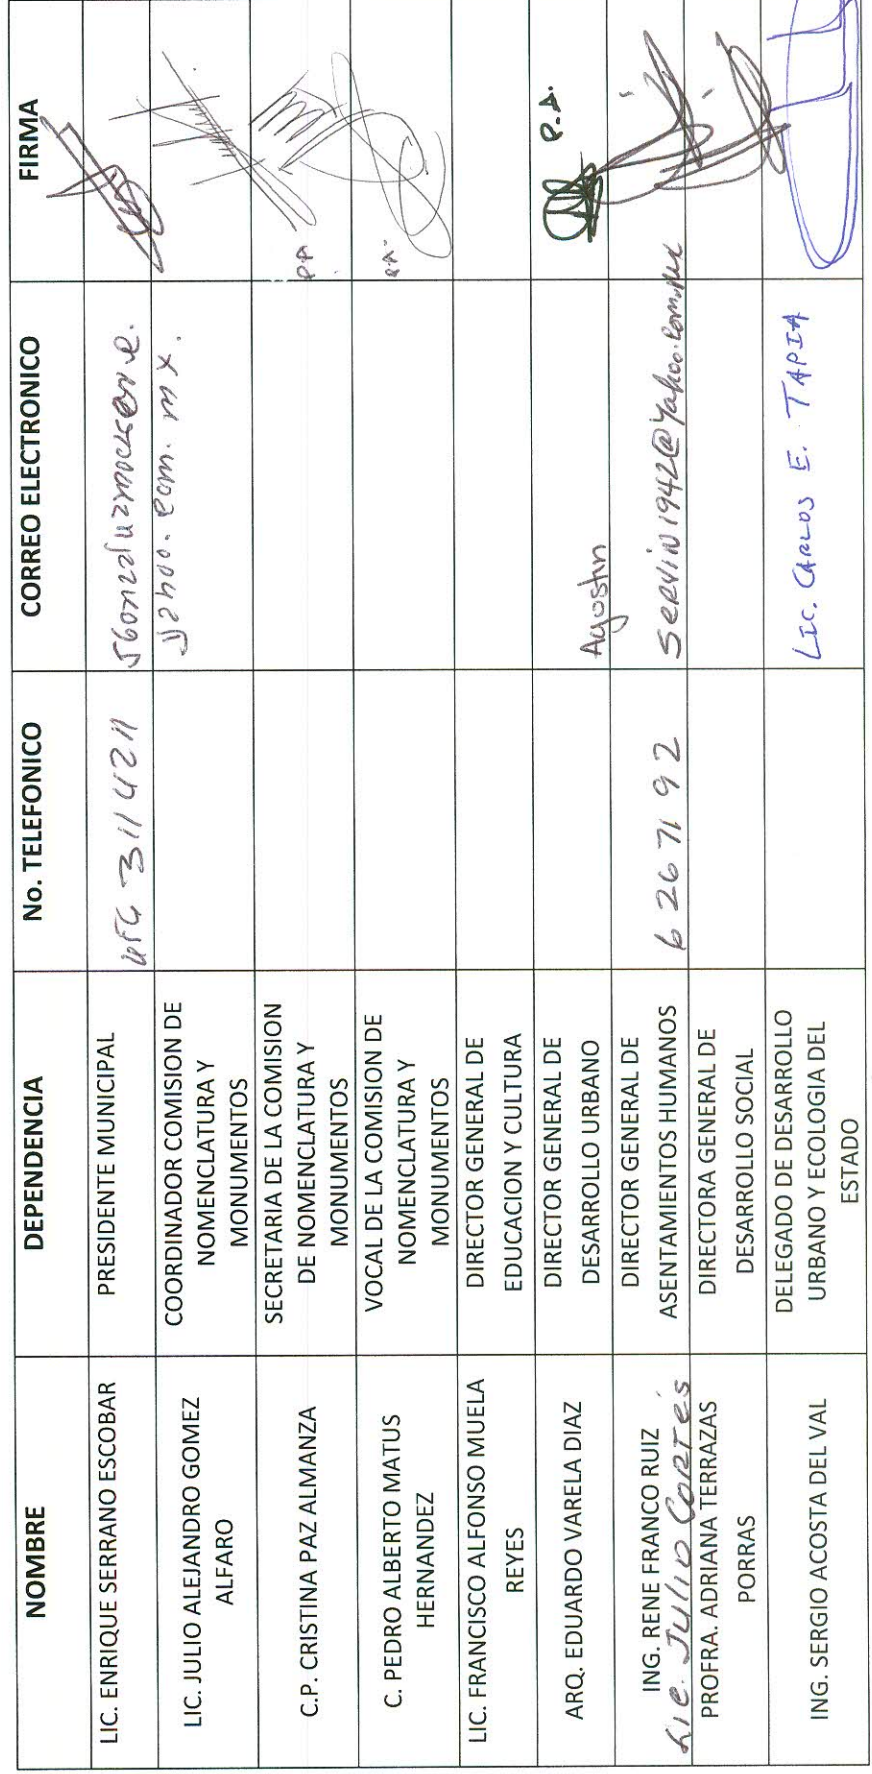 NOMBRE DEPENDENCIA No. TELEFONICO CORREO ELECTRONICO FIRMA
LIC. ENRIQUE SERRANO ESCOBAR PRESIDENTE MUNICIPAL 3114211
LIC. JULIO ALEJANDRO GOMEZ
ALFARO
COORDINADOR COMISION DE
NOMENCLATURA Y
MONUMENTOS
yahoo.com.mx.
C.P. CRISTINA PAZ ALMANZA
SECRETARIA DE LA COMISION
DE NOMENCLATURA Y
MONUMENTOS
PA
C. PEDRO ALBERTO MATUS
HERNANDEZ
VOCAL DE LA COMISION DE
NOMENCLATURA Y
MONUMENTOS
PA
LIC. FRANCISCO ALFONSO MUELA
REYES
DIRECTOR GENERAL DE
EDUCACION Y CULTURA
ARQ. EDUARDO VARELA DIAZ
DIRECTOR GENERAL DE
DESARROLLO URBANO
Agustin
P.A.
ING. RENE FRANCO RUIZ
Lic. Julio Cortés
DIRECTOR GENERAL DE
ASENTAMIENTOS HUMANOS
6 26 71 92
servin1942@yahoo.com.mx
PROFRA. ADRIANA TERRAZAS
PORRAS
DIRECTORA GENERAL DE
DESARROLLO SOCIAL
ING. SERGIO ACOSTA DEL VAL
DELEGADO DE DESARROLLO
URBANO Y ECOLOGIA DEL
ESTADO
Lic. CARLOS E. TAPIA